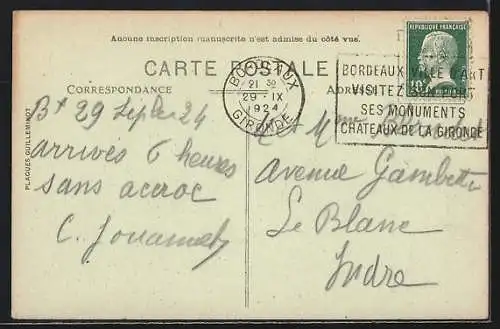 Aucune inscription manuscrite n'est admise du côté vue.
CARTE POSTALE
CORRESPONDANCE
PLAQUES GUILLEMINOT
RÉPUBLIQUE FRANÇAISE
BORDEAUX
21 30
29-IX
1924
GIRONDE
BORDEAUX VILLE D'ART
VISITEZ SON PORT
SES MONUMENTS
CHATEAUX DE LA GIRONDE
Bx 29 Sept 24
arrivés 6 heures
sans accroc
et Mme
Avenue Gambetta
Le Blanc
Indre